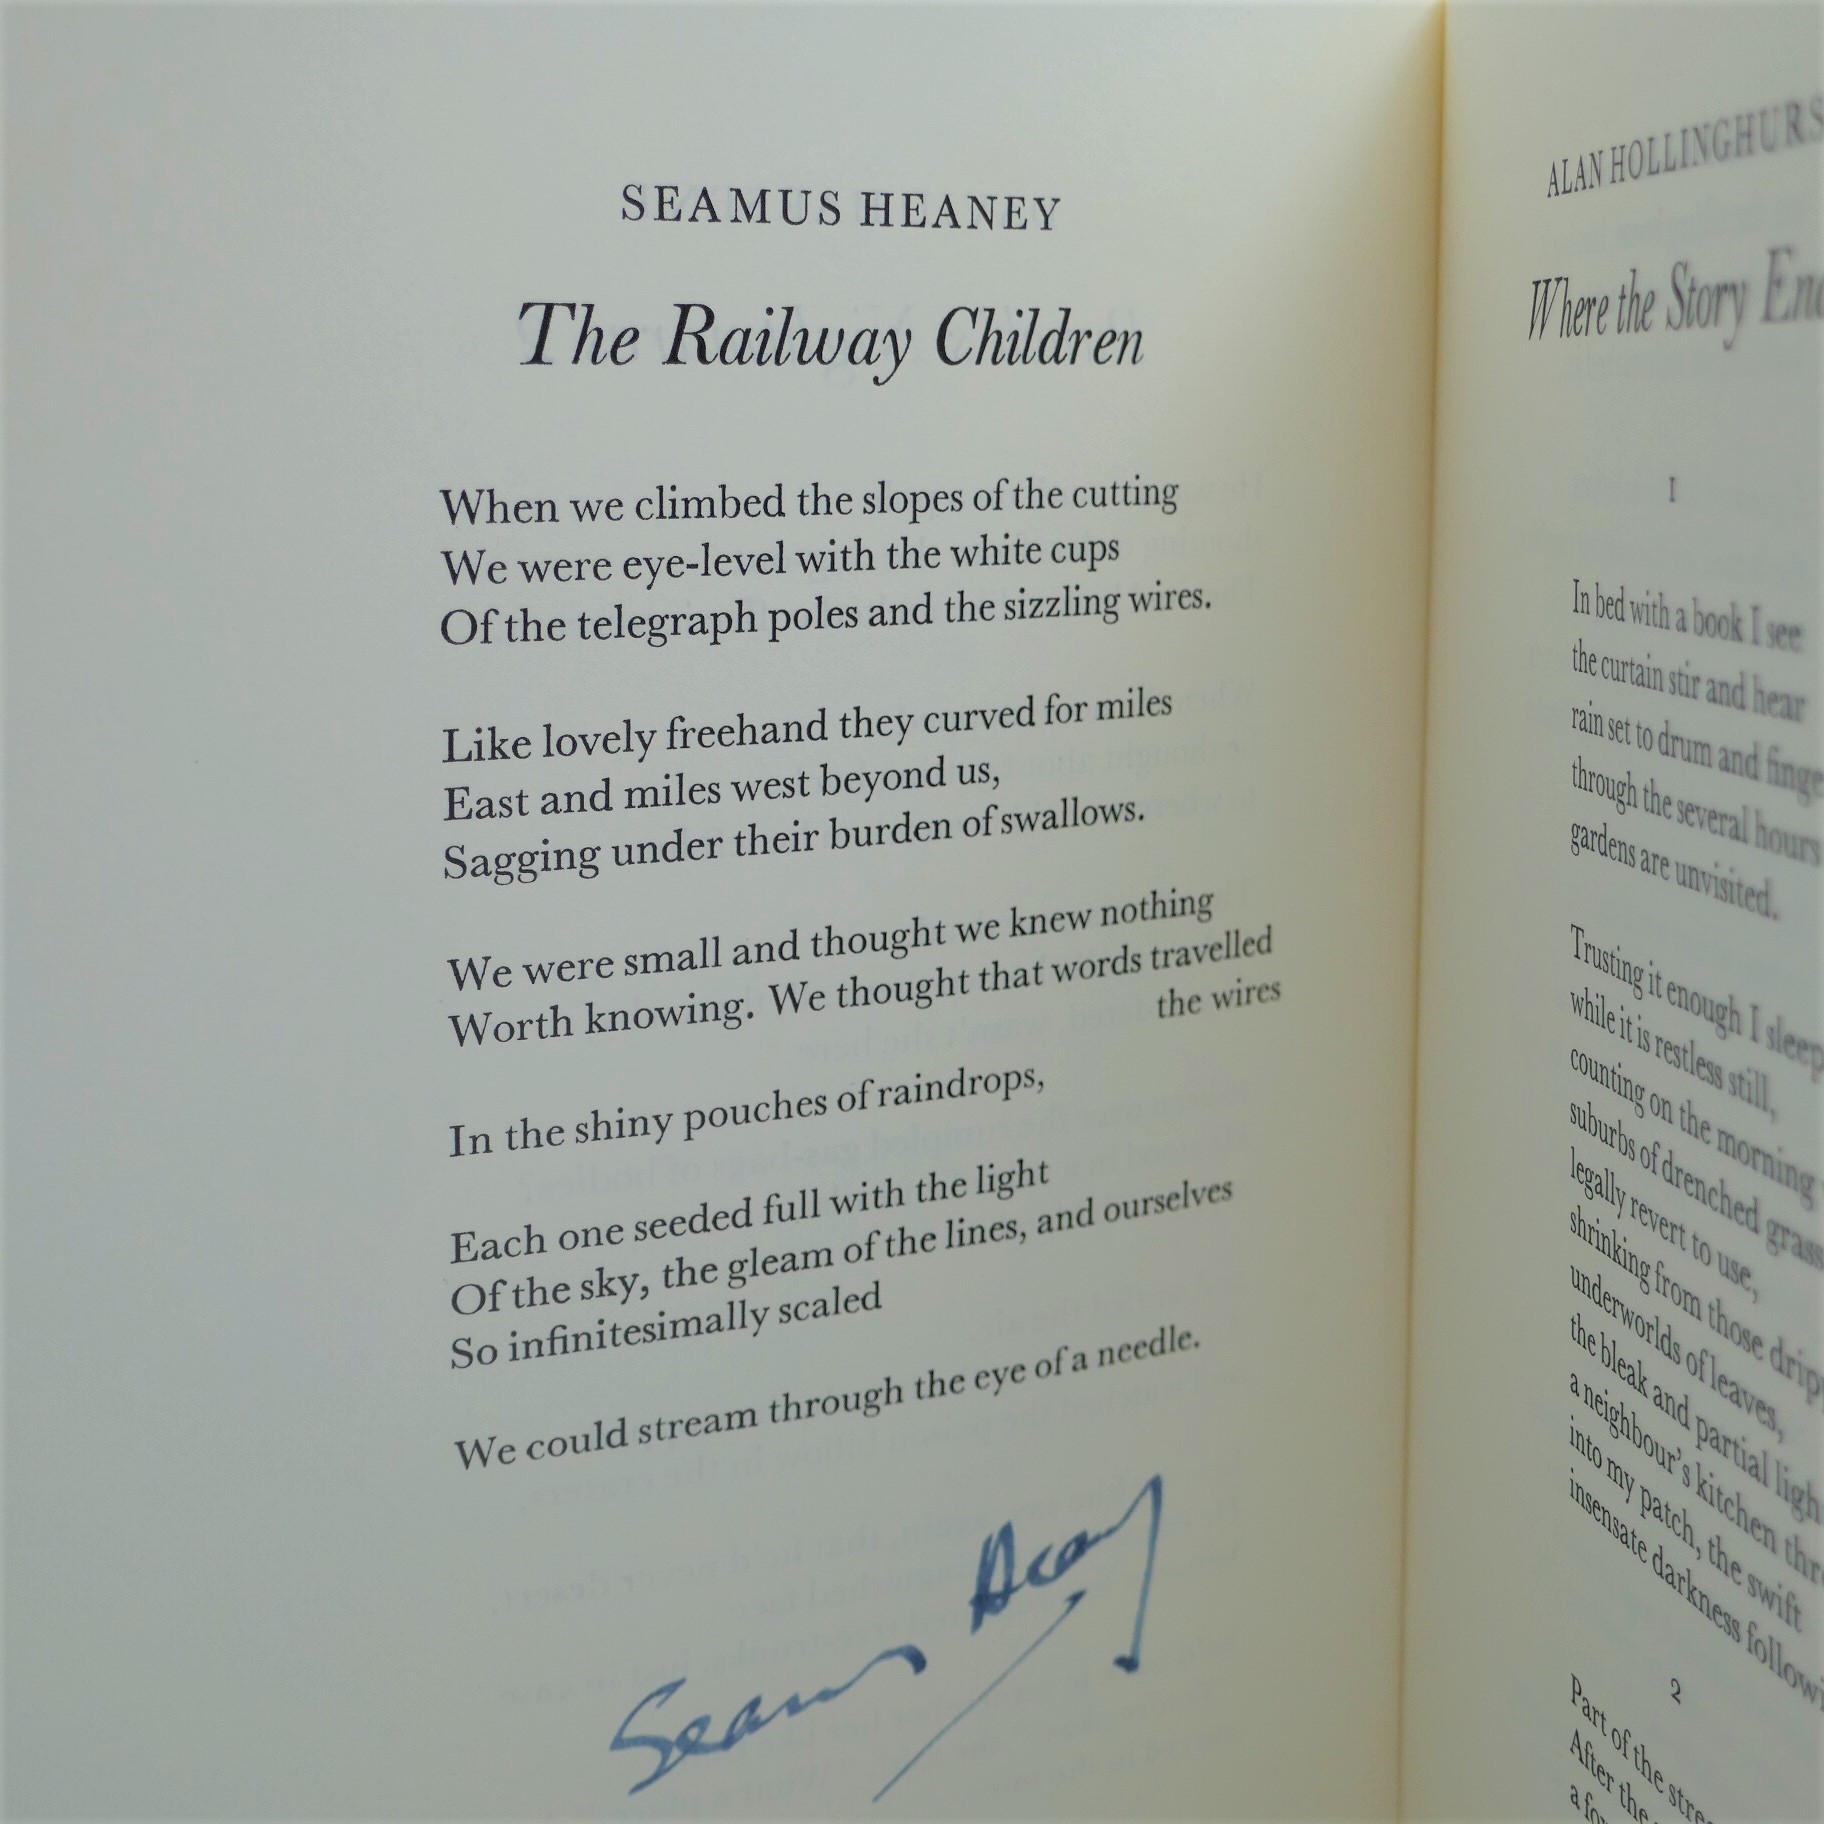 SEAMUS HEANEY
The Railway Children
When we climbed the slopes of the cutting
We were eye-level with the white cups
Of the telegraph poles and the sizzling wires.
Like lovely freehand they curved for miles
East and miles west beyond us,
Sagging under their burden of swallows.
We were small and thought we knew nothing
Worth knowing. We thought that words travelled
the wires
In the shiny pouches of raindrops,
Each one seeded full with the light
Of the sky, the gleam of the lines, and ourselves
So infinitesimally scaled
We could stream through the eye of a needle.
Seamus Heaney
ALAN HOLLINGHURS
Where the Story
I
In bed with a book I see
the curtain stir and hear
rain set to drum and
through the several hours
gardens are unvisited.
Trusting it enough I sleep
while it is restless still,
counting on the morning
suburbs of drenched grass
legally revert to use,
shrinking from those
underworlds of leaves,
the bleak and partial
a neighbour's kitchen
into my patch, the swift
insensate darkness
2
Part of the
After the
a